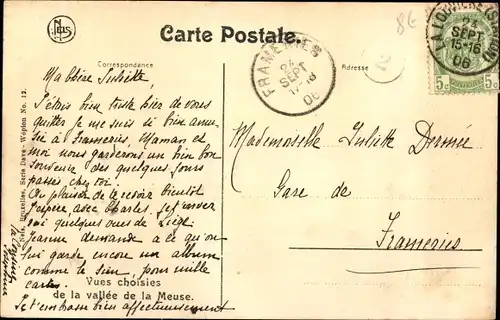 NELS
Carte Postale.
8€
LA LOUVIÈRE
24
SEPT
15-16
06
5c 5c
FRAMERIES
24
SEPT
17-18
06
2
Correspondance
Adresse
Ma chère Juliette,
J'étais bien triste hier de vous
quitter je me suis si bien amu-
sée à Frameries, Maman et
moi nous garderons un bien bon
souvenir des quelques jours
passés chez toi.
Au plaisir de te revoir bientôt
j'espère, avec Charles. Je t'envoie
ici quelques vues de Liège
Jeanne demande à ce qu'on
lui garde encore un album
comme le sien, pour mille
cartes.
Je t'embrasse bien affectueusement
Ta cousine
Vues choisies
de la vallée de la Meuse.
Nels, Bruxelles, Serie Dave - Wépion No. 12.
Mademoiselle Juliette Dermée
Gare de
Frameries